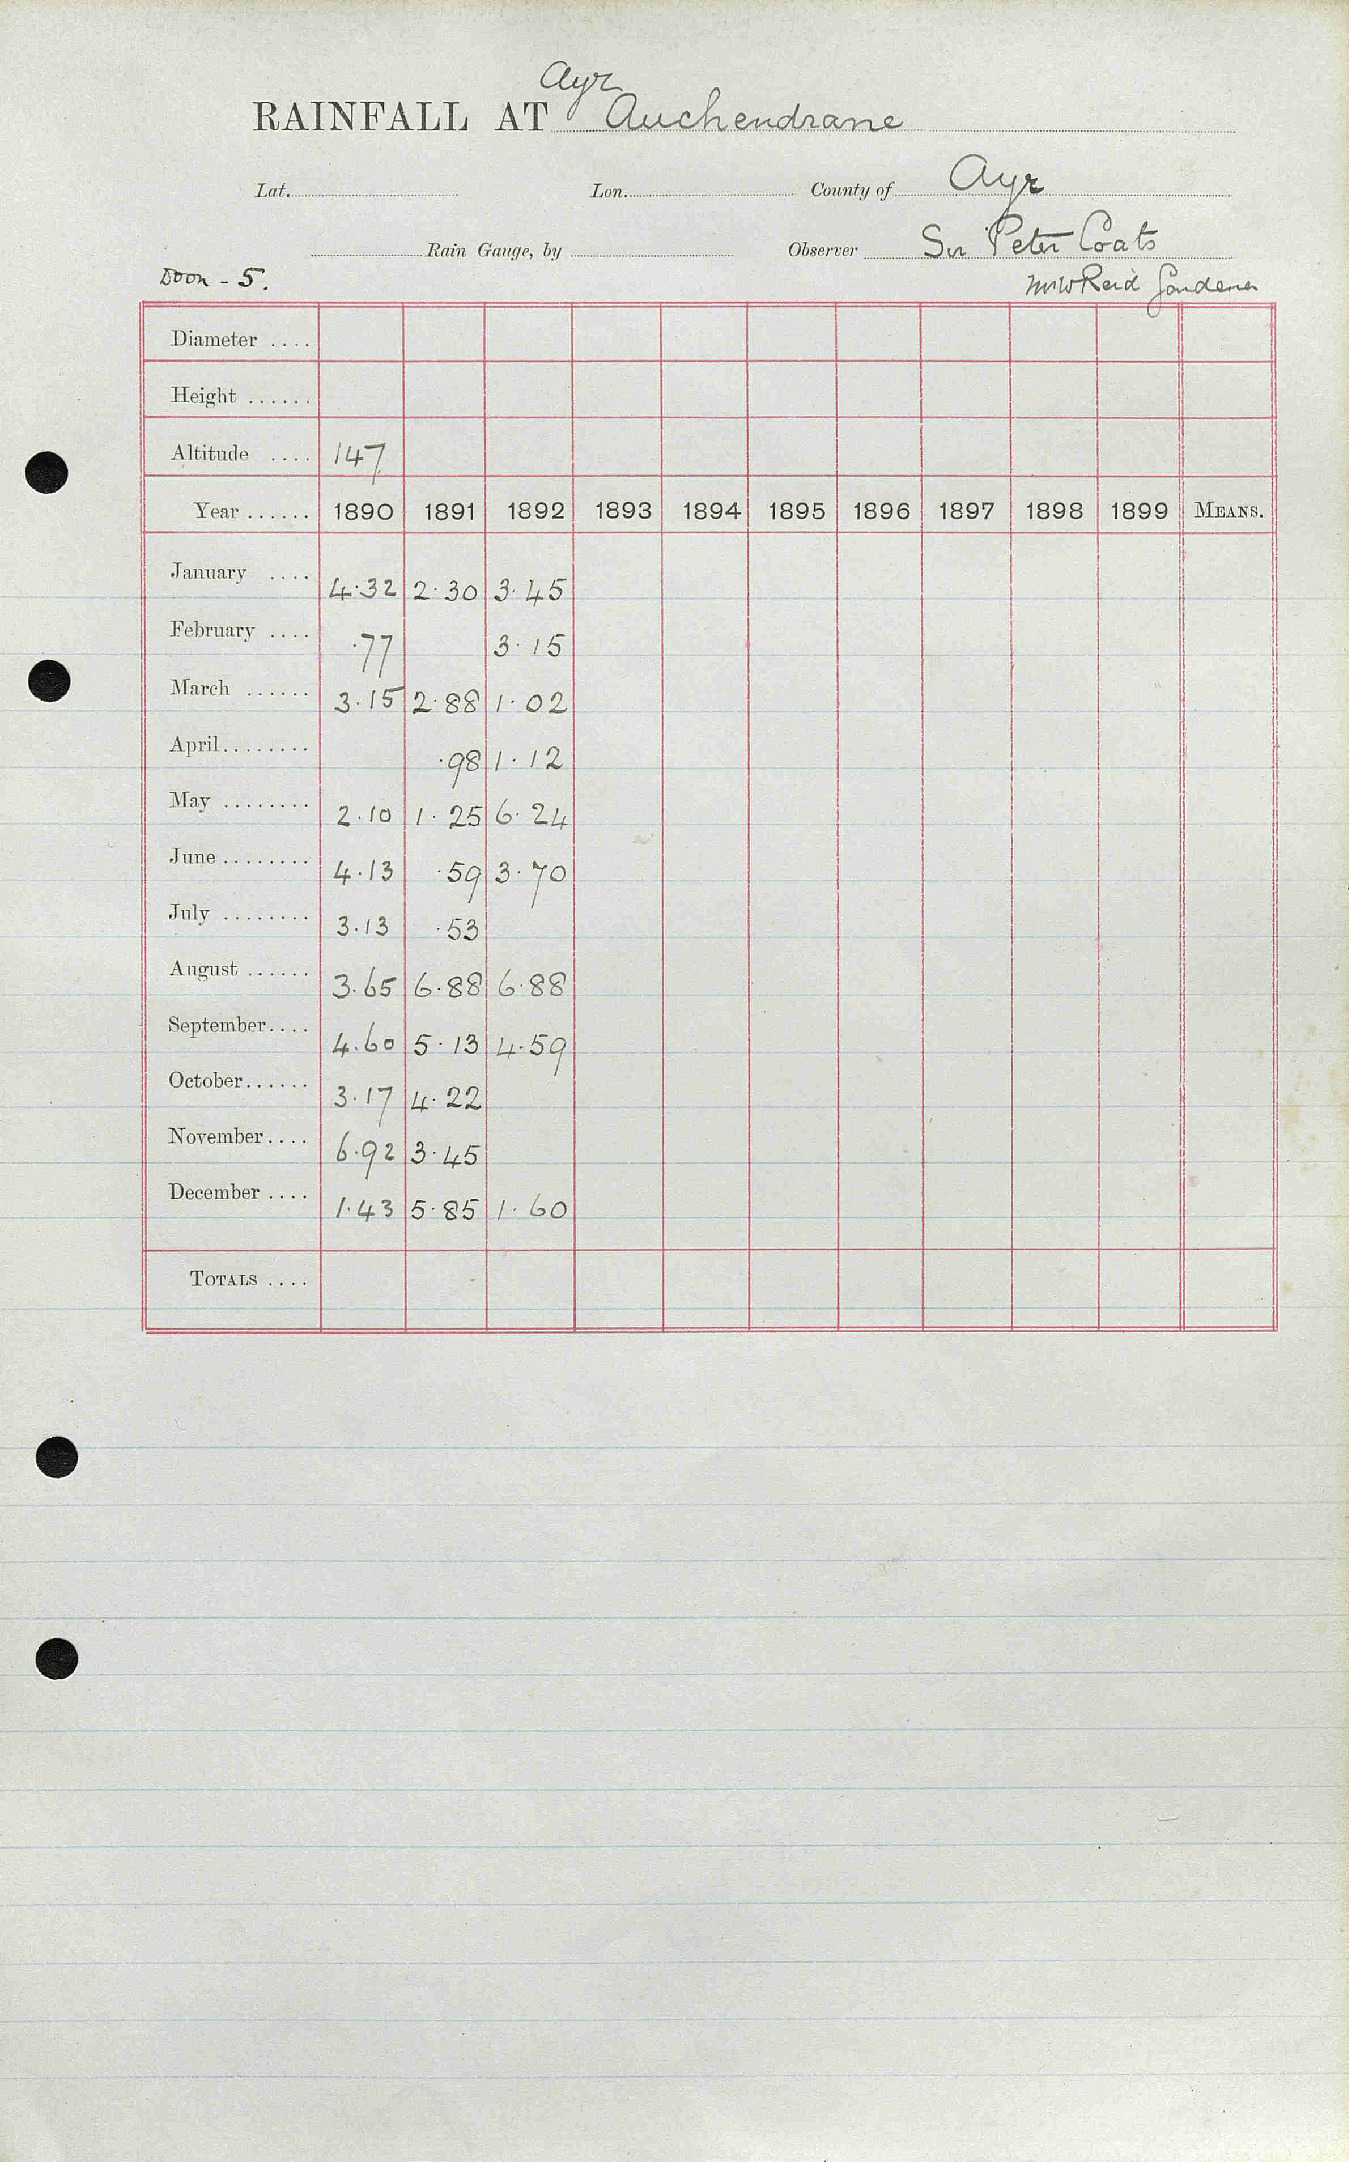 Ayr
RAINFALL AT Auchendrane
Lat. Lon. County of Ayr
Rain Gauge, by Observer Sir Peter Coats
Doon - 5. Mr W Reid Gardener
Diameter ....
Height ......
Altitude .... 147
Year ...... 1890 1891 1892 1893 1894 1895 1896 1897 1898 1899 MEANS.
January .... 4.32 2.30 3.45
February .... .77 3.15
March ...... 3.15 2.88 1.02
April ........ .98 1.12
May ........ 2.10 1.25 6.24
June ........ 4.13 .59 3.70
July ........ 3.13 .53
August ...... 3.65 6.88 6.88
September .... 4.60 5.13 4.59
October ...... 3.17 4.22
November .... 6.92 3.45
December .... 1.43 5.85 1.60
TOTALS ....